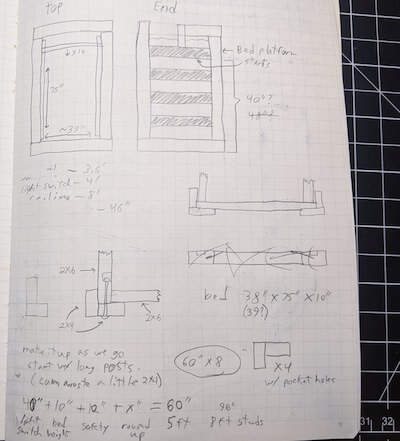 Top
End
x10
75"
~39"
Bed platform
starts
40"?
3.6'
light switch - 4'
ceiling - 8'
- 46"
2x6
2x4
2x6
bed 38" x 75" x 10"
(39?)
make it up as we go
start w/ long posts.
60" x 8
x4
w/ pocket holes
40" + 10" + 10" + x" = 60" 96"
light bed safety round 5ft 8ft studs
switch height up
31 32